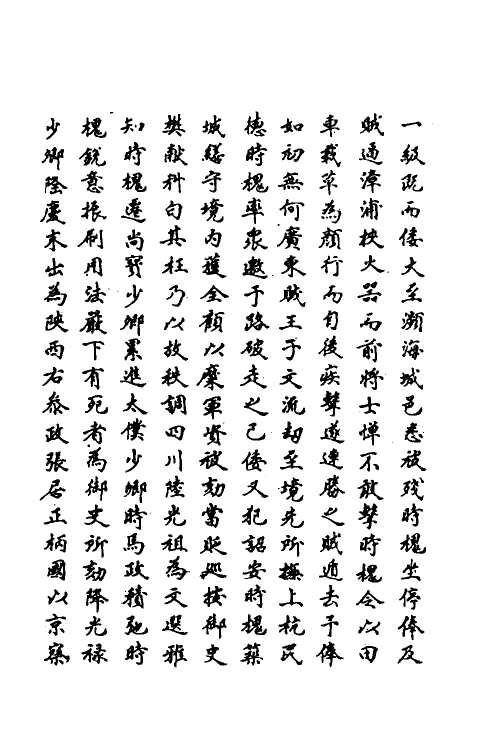 一級既而倭大至瀕海城邑悉被殘時槐坐停俸及
賊逼漳浦挾火器而前將士憚不敢擊時槐令以田
車載草為前行而自後疾擊遂連勝之賊遁去予俸
如初無何廣東賊王子文流劫至境先所撫上杭民
徳時槐率衆邀于路破走之已倭又犯詔安時槐築
城繕守境内獲全顧以糜軍資被劾當貶巡按御史
樊獻科白其枉乃以故秩調四川陸光祖為文選雅
知時槐遷尚寶少卿累進太僕少卿時馬政積弛時
槐銳意振刷用法嚴下有死者為御史所劾降光禄
少卿隆慶末出為陝西右參政張居正柄國以京察